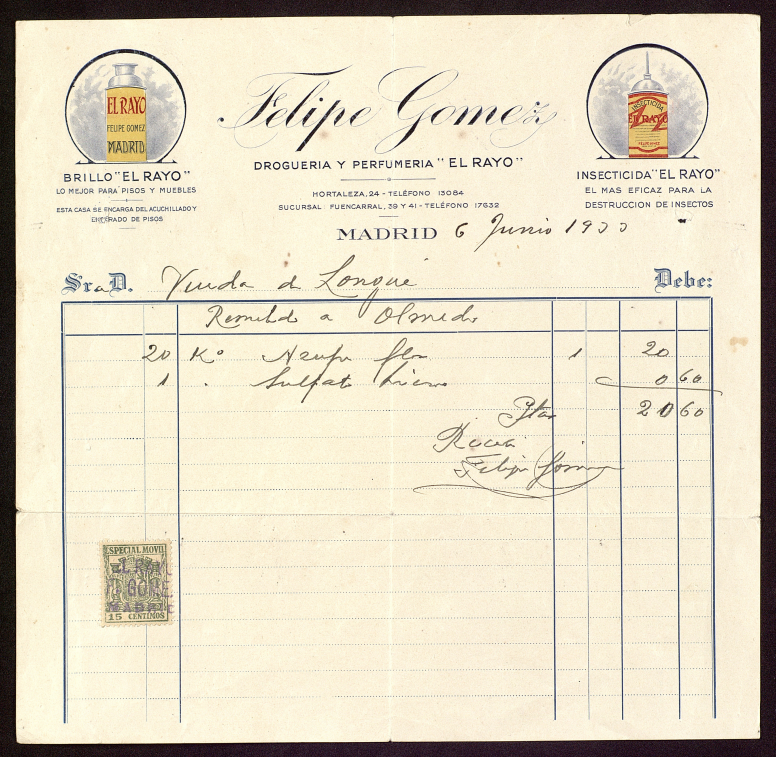 Felipe Gomez
DROGUERIA Y PERFUMERIA "EL RAYO"
HORTALEZA, 24 - TELÉFONO 13084
SUCURSAL: FUENCARRAL, 39 Y 41 - TELÉFONO 17632
EL RAYO
FELIPE GOMEZ
MADRID
BRILLO "EL RAYO"
LO MEJOR PARA PISOS Y MUEBLES
ESTA CASA SE ENCARGA DEL ACUCHILLADO Y
ENCERADO DE PISOS
INSECTICIDA
EL RAYO
FELIPE GOMEZ
INSECTICIDA "EL RAYO"
EL MAS EFICAZ PARA LA
DESTRUCCION DE INSECTOS
MADRID 6 Junio 1933
Sra D. Viuda de Longué Debe:
Remitido a Olmedo
20 Ko Azufre flor 1 20
1 " Sulfato hierro 0 60
Ptas 20 60
Recibí
Felipe Gómez
ESPECIAL MOVIL
EL RAYO
GOME
MADRID
15 CENTIMOS